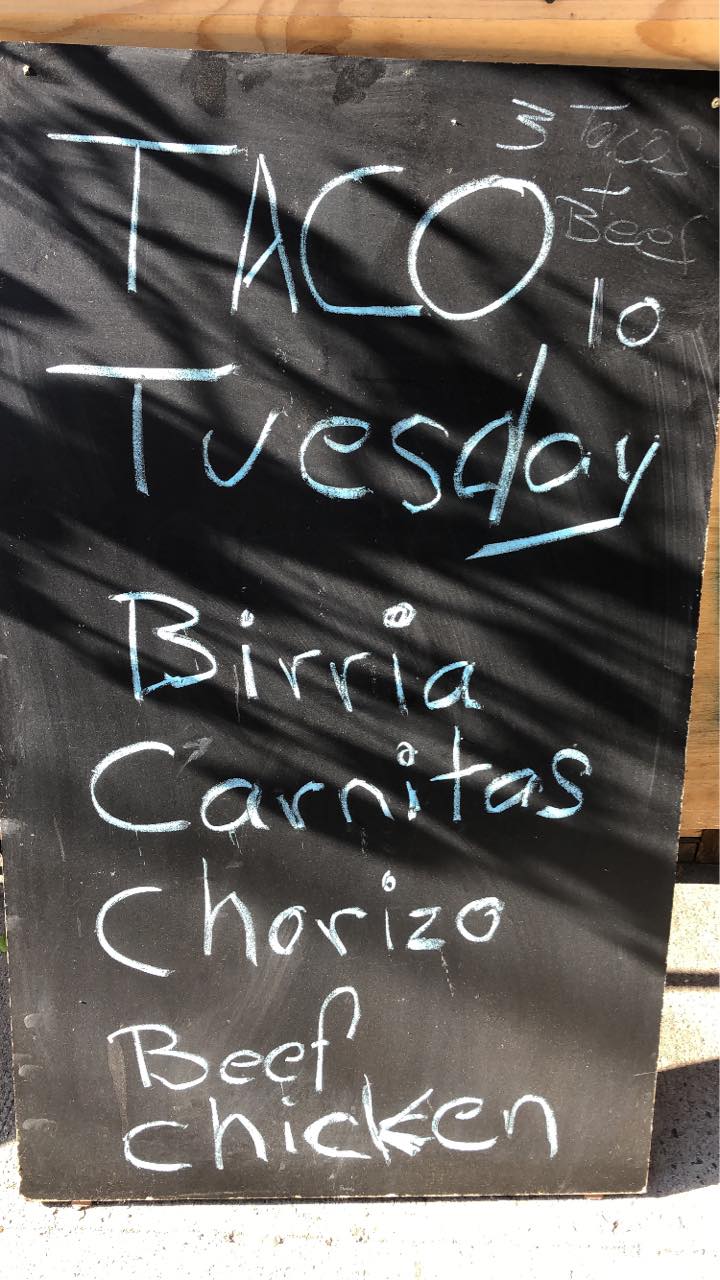 TACO
Tuesday
3 Tacos
+
Beer
10
Birria
Carnitas
Chorizo
Beef
chicken